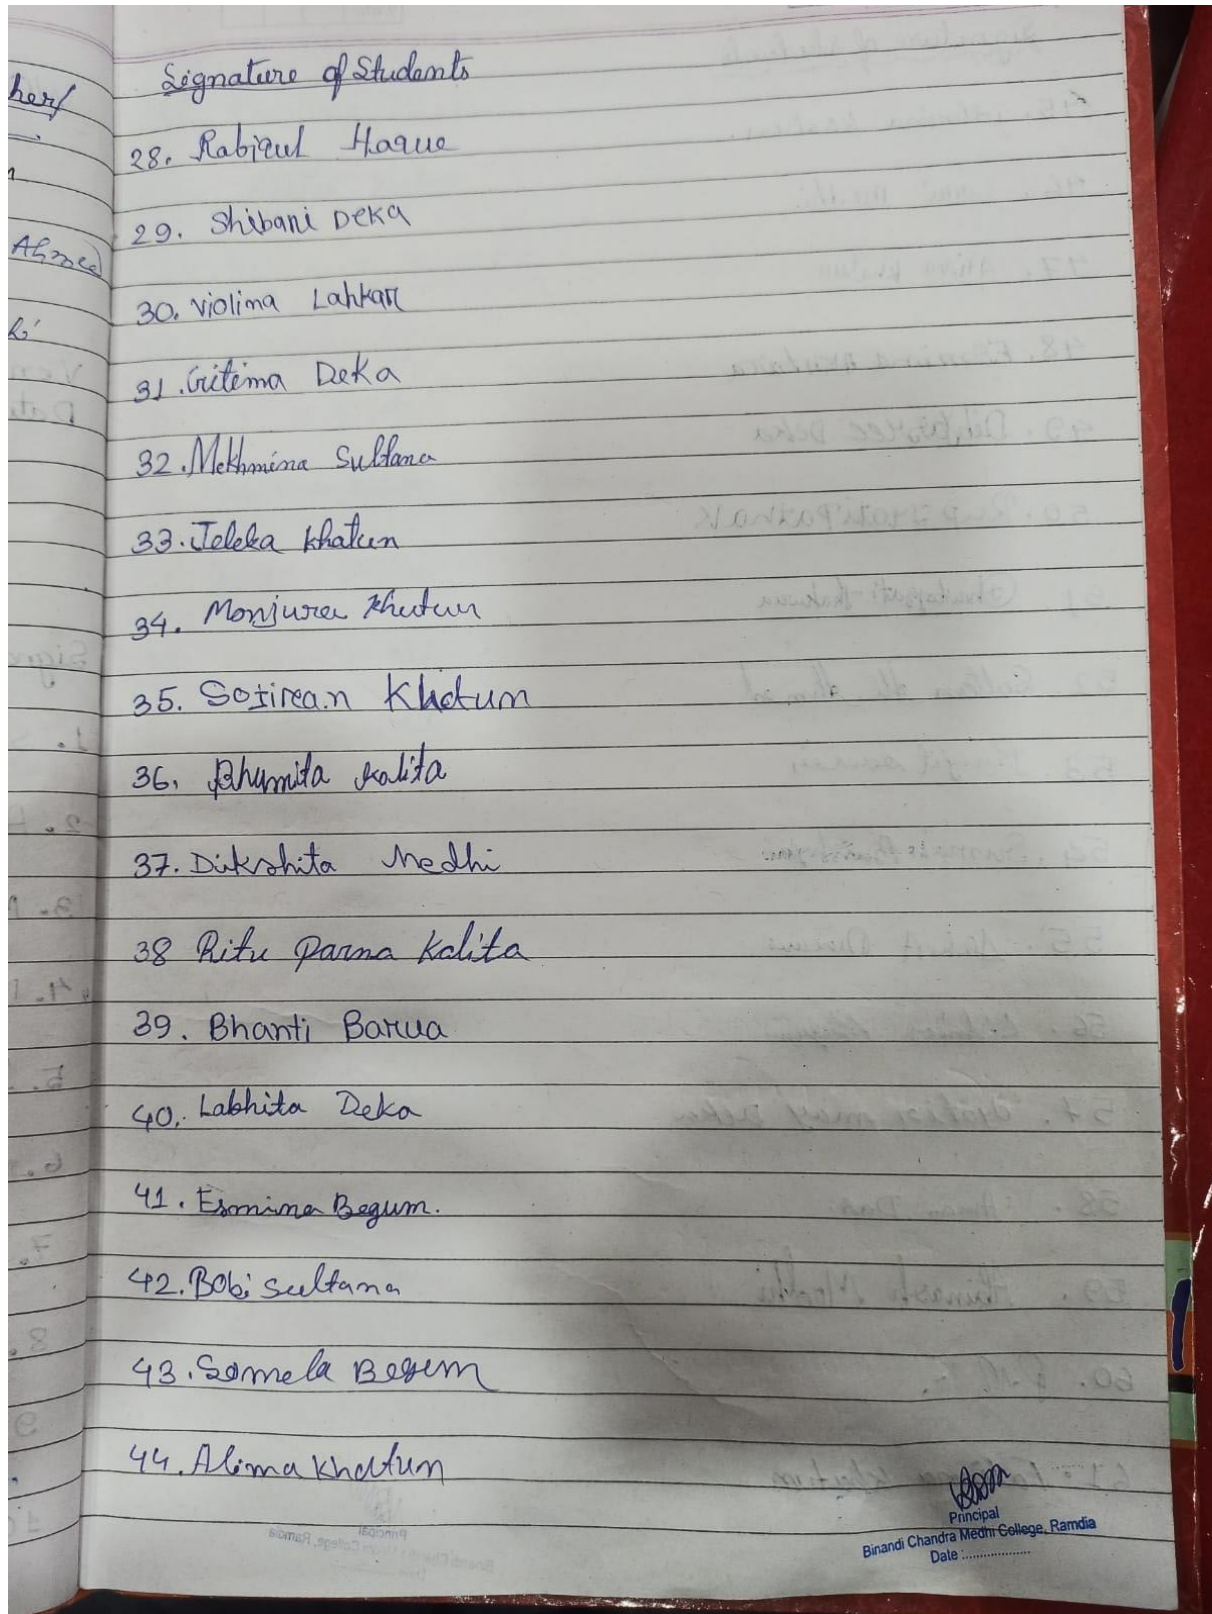 Signature of Students
28. Rabiqul Haque
29. Shibani Deka
30. Violima Lahkar
31. Gitima Deka
32. Mekhmina Sultana
33. Jeleka Khatun
34. Monjura Khatun
35. Khatun
36. Bhumita Kalita
37. Dikshita Medhi
38 Ritu Parna Kalita
39. Bhanti Barua
40. Labhita Deka
41. Esmina Begum.
42. Bobi Sultana
43. Somela Begum
44. Alima Khatun
Ahmed
Principal
Binandi Chandra Medhi College, Ramdia
Date :...................